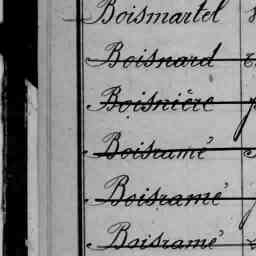 Boismartel
Boisnard
Boisnière
Boisramé
Boisramé
Boisramé